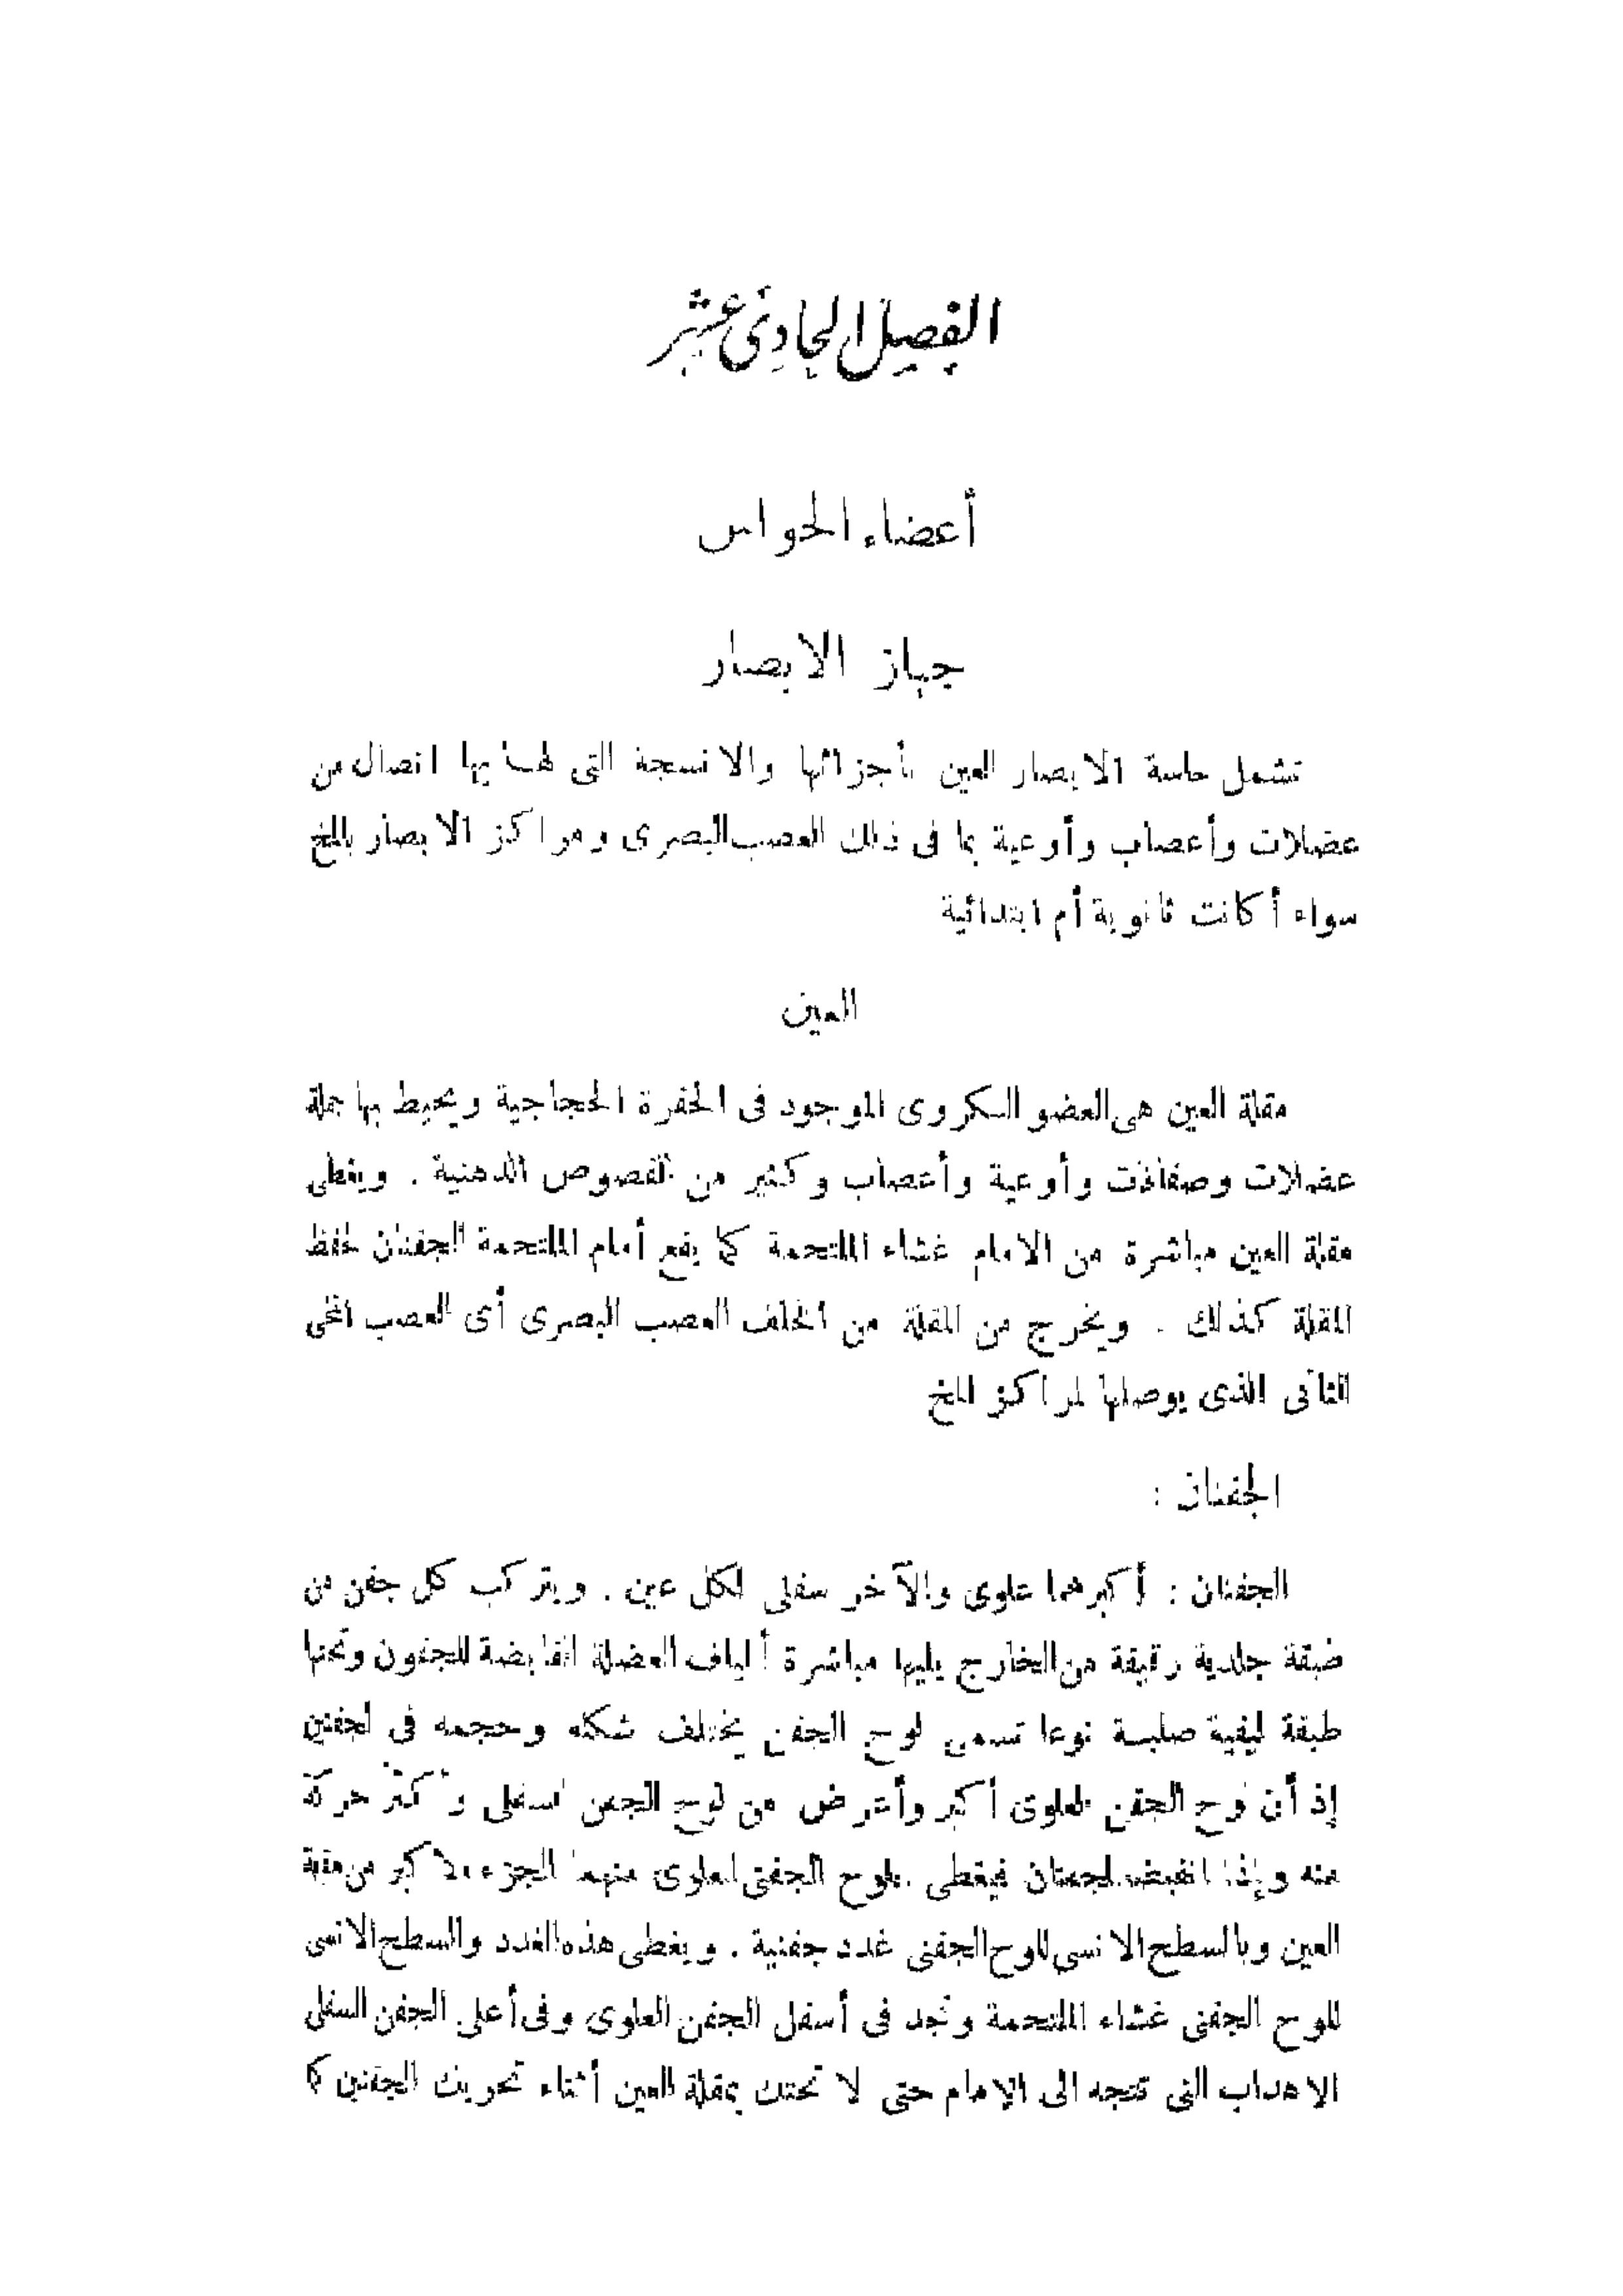 الفصل الحادى عشر
أعضاء الحواس
جهاز الابصار
تشمل حاسة الابصار العين بأجزائها والانسجة التى لها بها اتصال من
عضلات وأعصاب وأوعية بما فى ذلك العصب البصرى ومراكز الابصار بالمخ
سواء أكانت ثانوية أم ابتدائية
العين
مقلة العين هى العضو الكروى الموجود فى الحفرة الحجاجية ويحيط بها جملة
عضلات وصفاقات وأوعية وأعصاب وكثير من الفصوص الدهنية . ويغطى
مقلة العين مباشرة من الامام غشاء الملتحمة كما يقع أمام الملتحمة الجفنان لحفظ
المقلة كذلك . ويخرج من المقلة من الخلف العصب البصرى أى العصب المخى
الثانى الذى يوصلها لمراكز المخ
الجفنان :
الجفنان : أكبرهما علوى والآخر سفلى لكل عين . ويتركب كل جفن من
طبقة جلدية رقيقة من الخارج يليها مباشرة ألياف العضلة القابضة للجفون وتحتها
طبقة ليفية صلبة نوعا تسمى لوح الجفن يختلف شكله وحجمه فى الجفنين
إذ أن لوح الجفن العلوى أكبر وأعرض من لوح الجفن السفلى وأكثر حركة
منه وإذا انقبض الجفنان فيغطى لوح الجفن العلوى منهما الجزء الاكبر من مقلة
العين وبالسطح الانسى للوح الجفنى غدد جفنية . ويغطى هذه الغدد والسطح الانسى
للوح الجفنى غشاء الملتحمة وتجد فى أسفل الجفن العلوى وفى أعلى الجفن السفلى
الاهداب التى تتجه الى الامام حتى لا تحتك بمقلة العين أثناء تحريك الجفنين كما